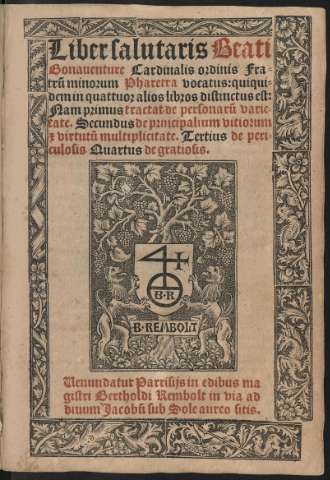 Liber salutaris Beati
Bonauenture Cardinalis ordinis Fra-
trū minorum Pharetra vocatus: quiqui-
dem in quattuor alios libros distinctus est:
Nam primus tractat de personarū varie-
tate. Secundus de principalium vitiorum
⁊ virtutū multiplicitate. Tertius de peri-
culosis Quartus de gratiosis.
B R
B·REMBOLT
Uenundatur Parrisijs in edibus ma
gistri Bertholdi Rembolt in via ad
diuum Jacobū sub Sole aureo sitis.